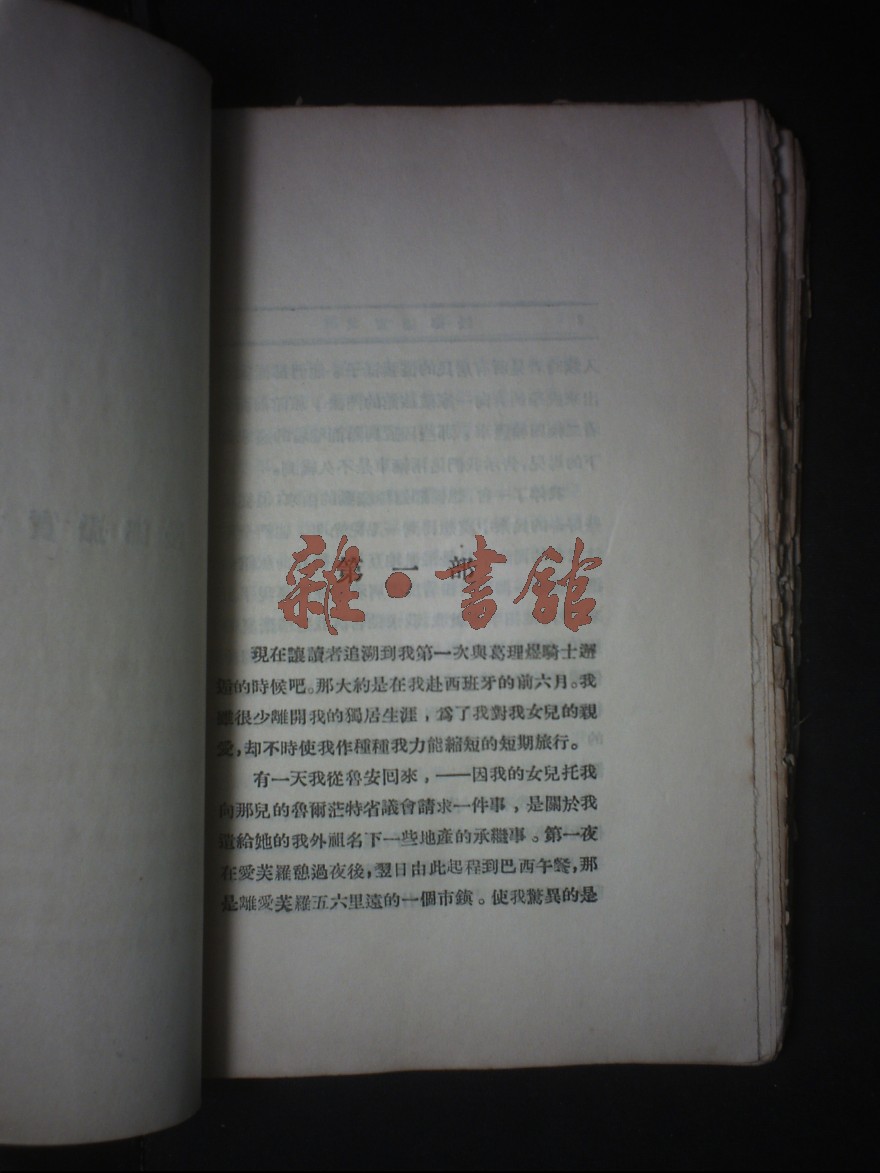 第一部
雜·書館
現在讓讀者追溯到我第一次與葛理煜騎士邂
逅的時候吧。那大約是在我赴西班牙的前六月。我
雖很少離開我的獨居生涯，爲了我對我女兒的親
愛，却不時使我作種種我力能縮短的短期旅行。
有一天我從魯安回來，——因我的女兒托我
向那兒的魯爾茫特省議會請求一件事，是關於我
遺給她的我外祖名下一些地產的承繼事。第一夜
在愛芙羅憩過夜後，翌日由此起程到巴西午餐，那
是離愛芙羅五六里遠的一個市鎮。使我驚異的是